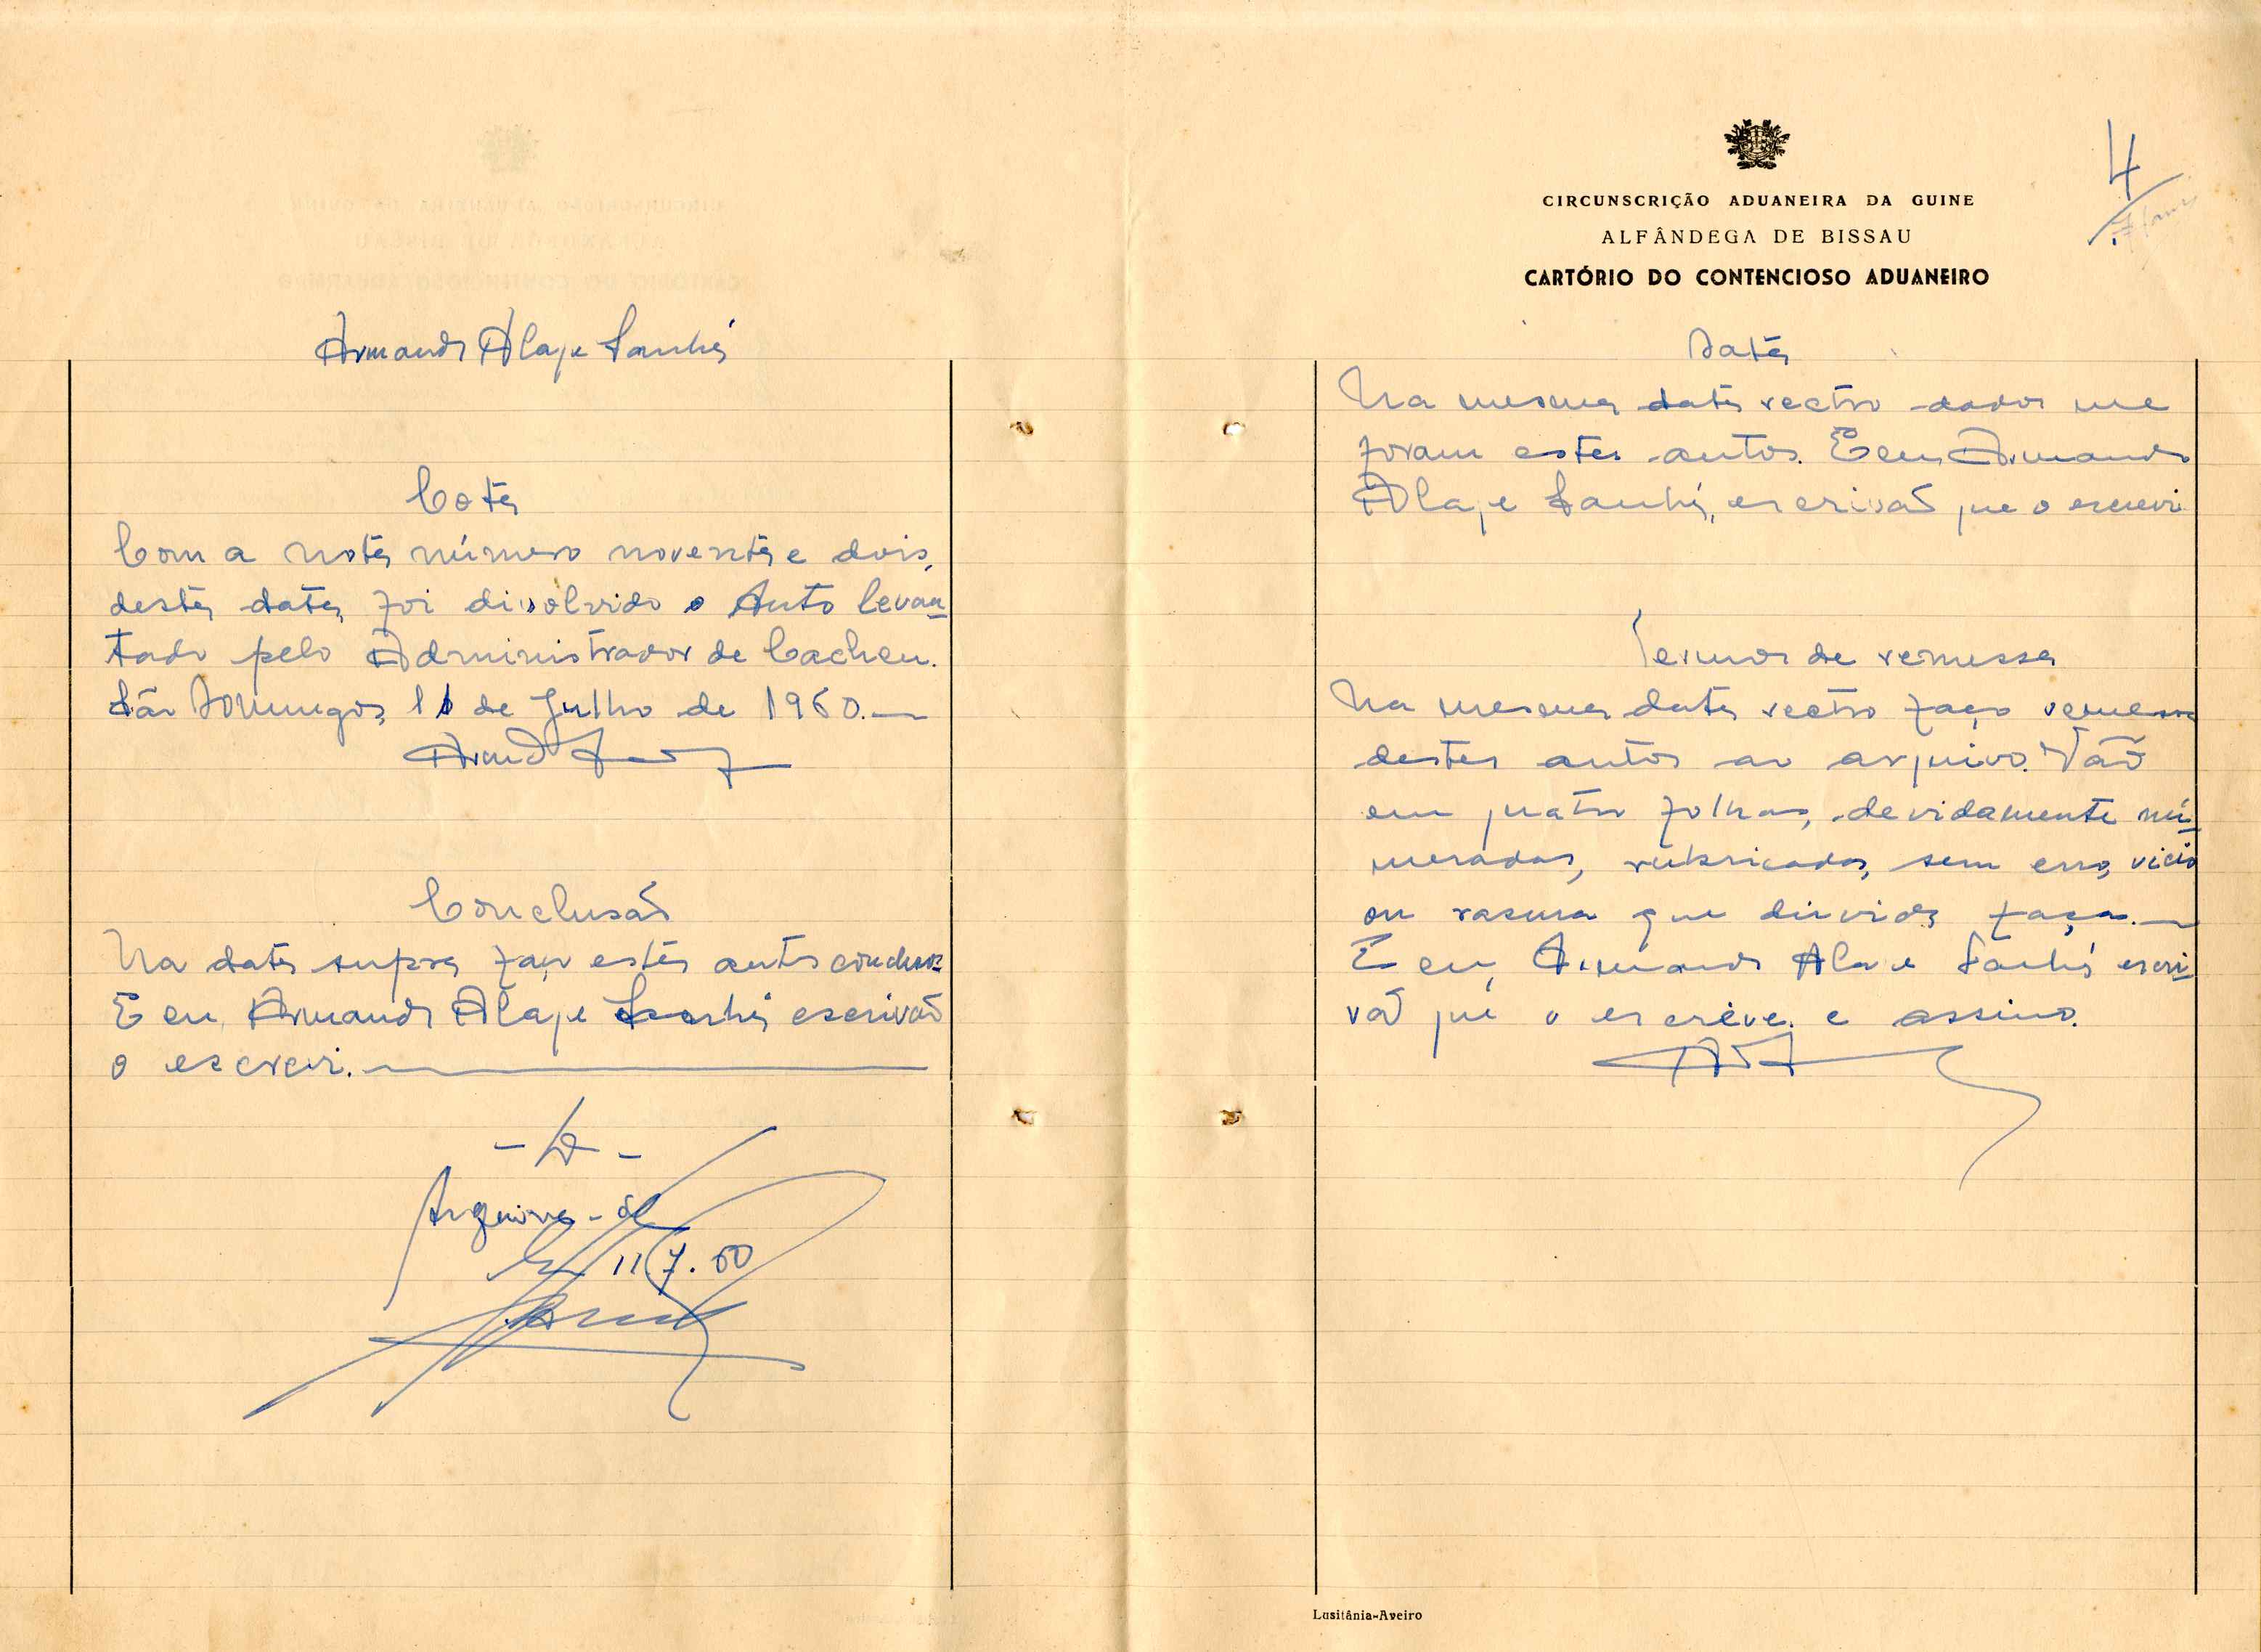 Armando Alaje Sanhá
Cota
Com a nota número noventa e dois,
desta data, foi divolvido o Auto levan-
tado pelo Administrador de Cacheu.
São Domingos, 11 de Julho de 1960.—
Conclusão
Na data supra faço estes autos conclusos
E eu, Armando Alaje Sanhá escrivão
o escrevi.
Arquive-se
11/7.60
CIRCUNSCRIÇÃO ADUANEIRA DA GUINE
ALFÂNDEGA DE BISSAU
CARTÓRIO DO CONTENCIOSO ADUANEIRO
4
Data
Na mesma data rectro dados me
foram estes autos. E eu, Armando
Alaje Sanhá, escrivão que o escrevi
Termos de remessa
Na mesma data rectro faço remessa
destes autos ao arquivo. Vão
em quatro folhas, devidamente nú-
meradas, rubricadas, sem erro, vicio
ou rasura que dúvida faça.—
E eu, Armando Alaje Sanhá escri-
vão que o escreve e assino.
Lusitânia-Aveiro